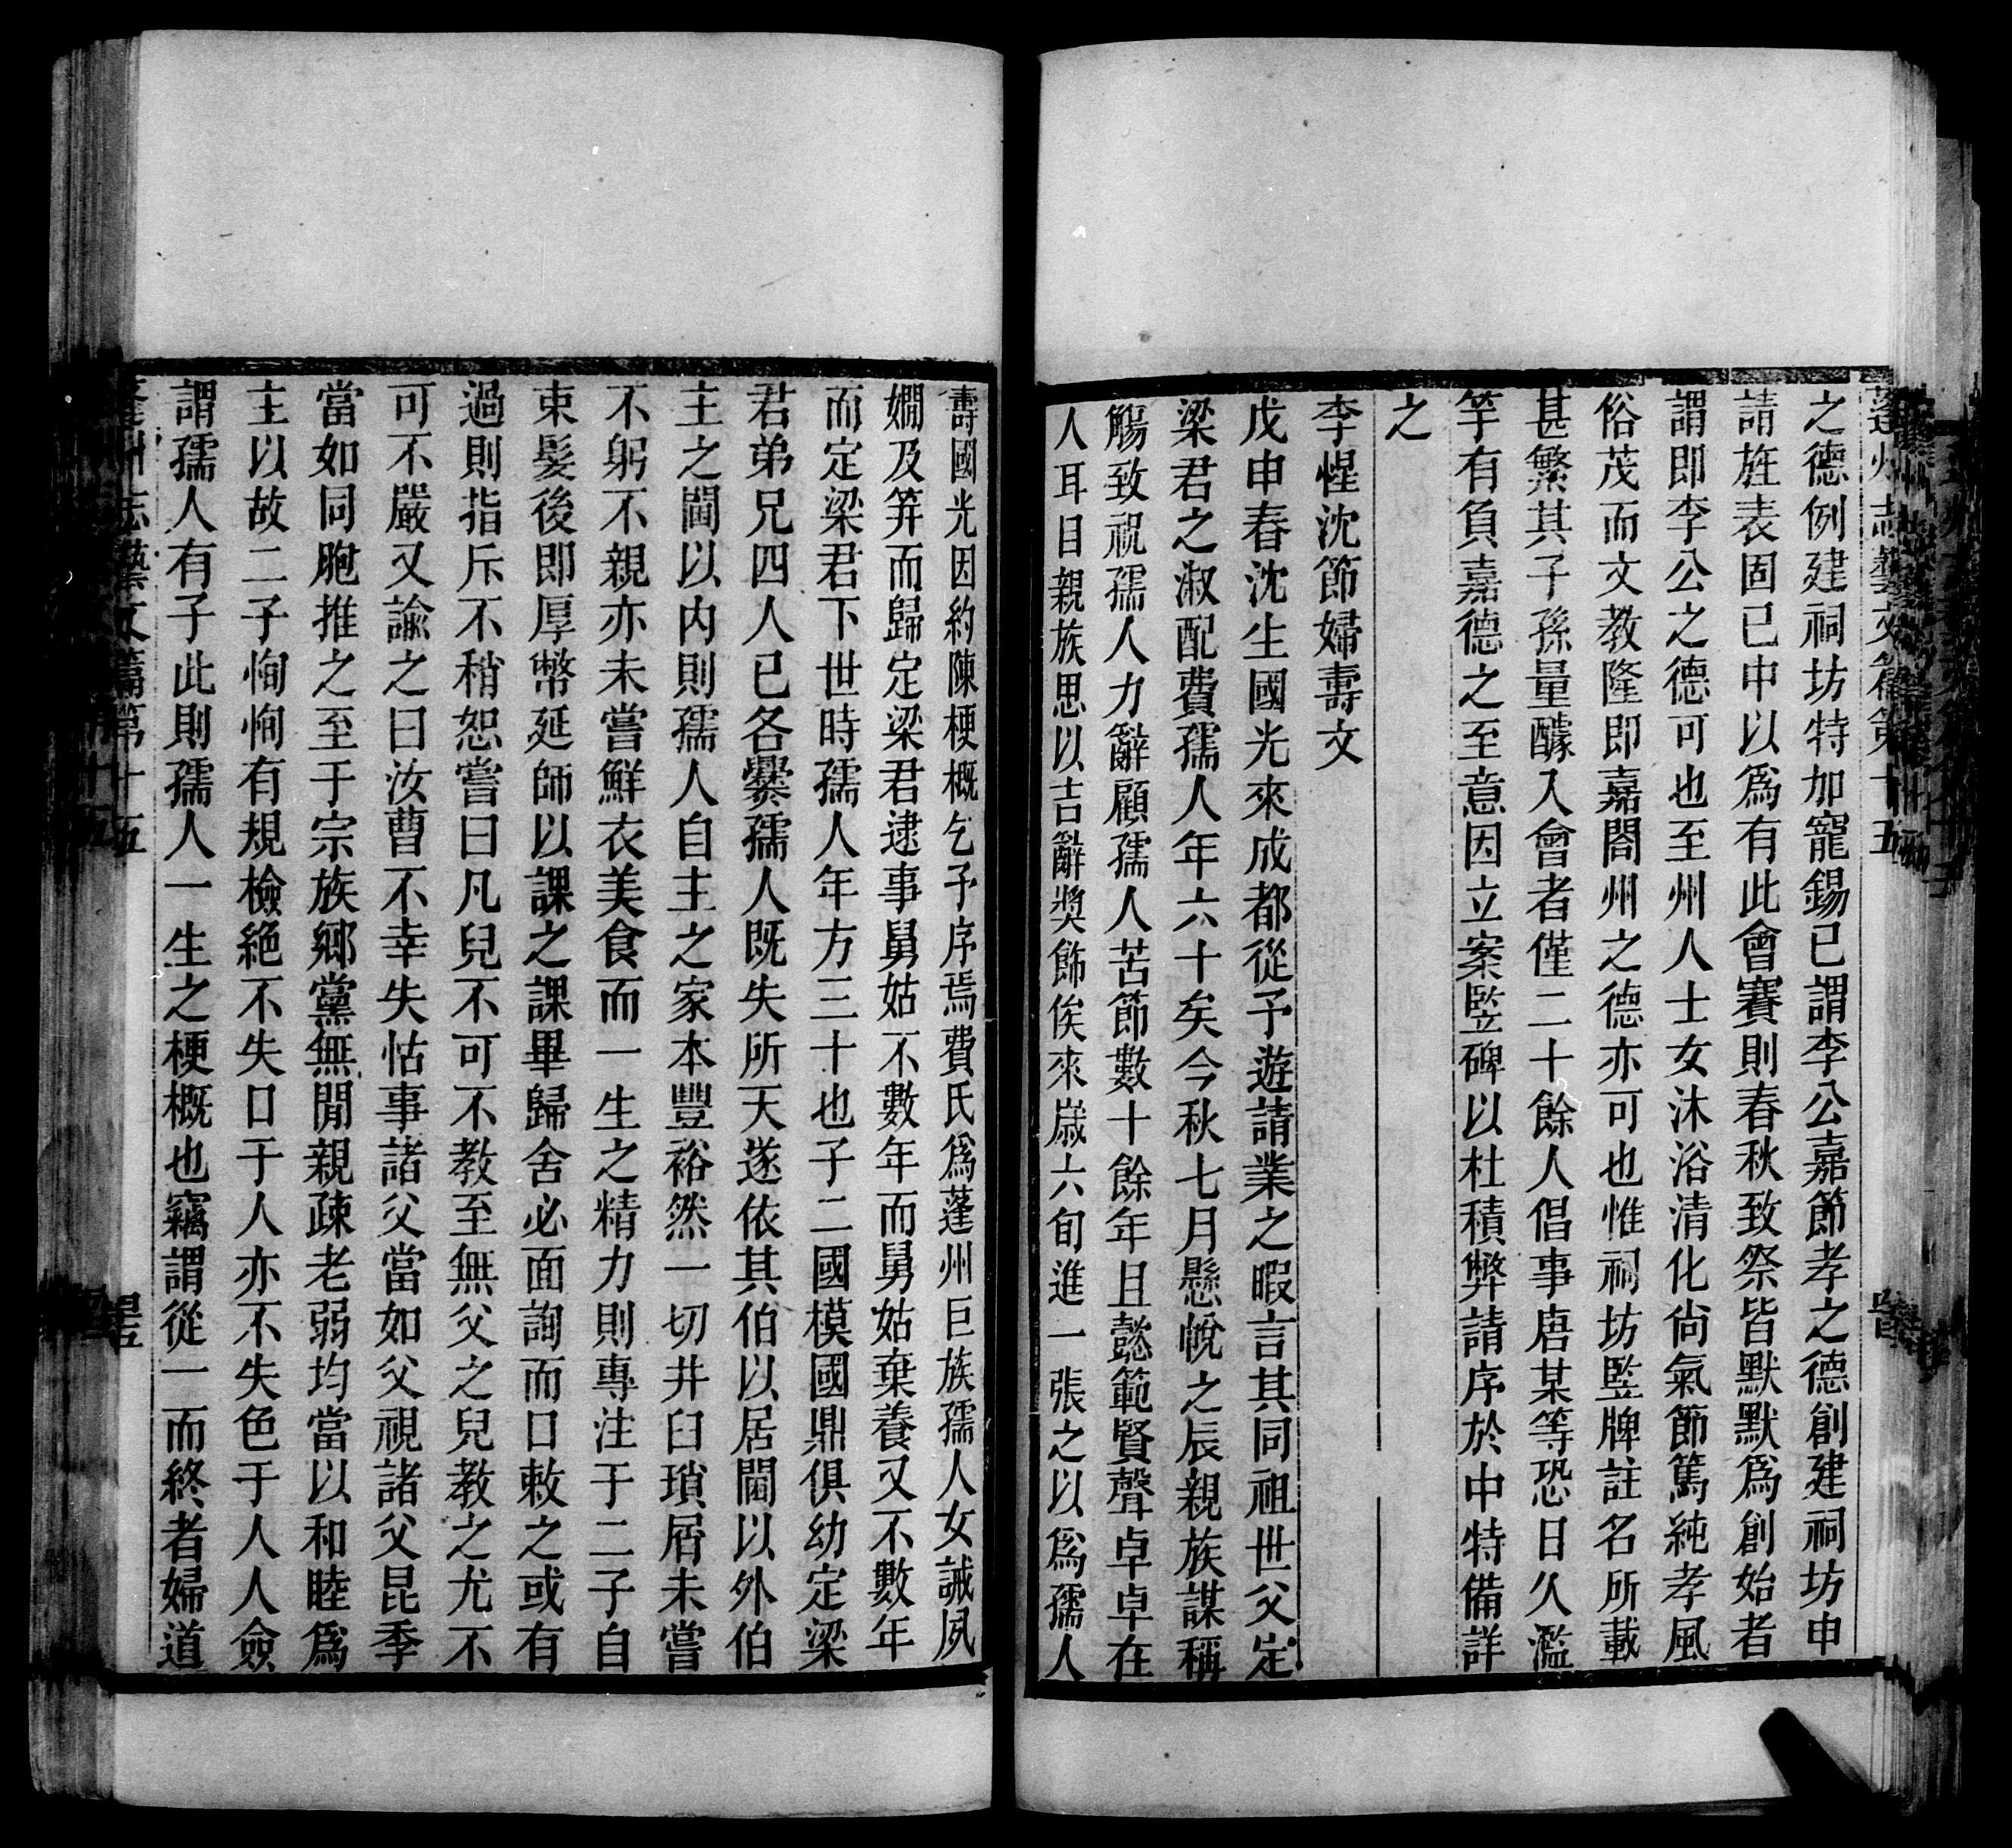 蓬州志藝文篇第十五
之德例建祠坊特加寵錫已謂李公嘉節孝之德創建祠坊申
請旌表固已中以爲有此會賽則春秋致祭皆默默爲創始者
謂即李公之德可也至州人士女沐浴清化尙氣節篤純孝風
俗茂而文教隆即嘉閤州之德亦可也惟祠坊監牌註名所載
甚繁其子孫量醵入會者僅二十餘人倡事唐某等恐日久濫
竽有負嘉德之至意因立案監碑以杜積弊請序於中特備詳
之
李惺沈節婦壽文
戊申春沈生國光來成都從予遊請業之暇言其同祖世父定
梁君之淑配費孺人年六十矣今秋七月懸帨之辰親族謀稱
觴致祝孺人力辭顧孺人苦節數十餘年且懿範賢聲卓卓在
人耳目親族思以吉辭獎飾俟來嵗六旬進一張之以爲孺人
壽國光因約陳梗概乞予序焉費氏爲蓬州巨族孺人女誡夙
嫺及笄而歸定梁君逮事舅姑不數年而舅姑棄養又不數年
而定梁君下世時孺人年方三十也子二國模國鼎俱幼定梁
君弟兄四人已各爨孺人既失所天遂依其伯以居閫以外伯
主之閫以内則孺人自主之家本豐裕然一切井臼瑣屑未嘗
不躬不親亦未嘗鮮衣美食而一生之精力則專注于二子自
束髮後即厚幣延師以課之課畢歸舍必面詢而口敕之或有
過則指斥不稍恕嘗曰凡兒不可不教至無父之兒教之尤不
可不嚴又諭之曰汝曹不幸失怙事諸父當如父視諸父昆季
當如同胞推之至于宗族鄉黨無閒親疎老弱均當以和睦爲
主以故二子恂恂有規檢絕不失口于人亦不失色于人人僉
謂孺人有子此則孺人一生之梗概也竊謂從一而終者婦道
蓬州志藝文篇第十五